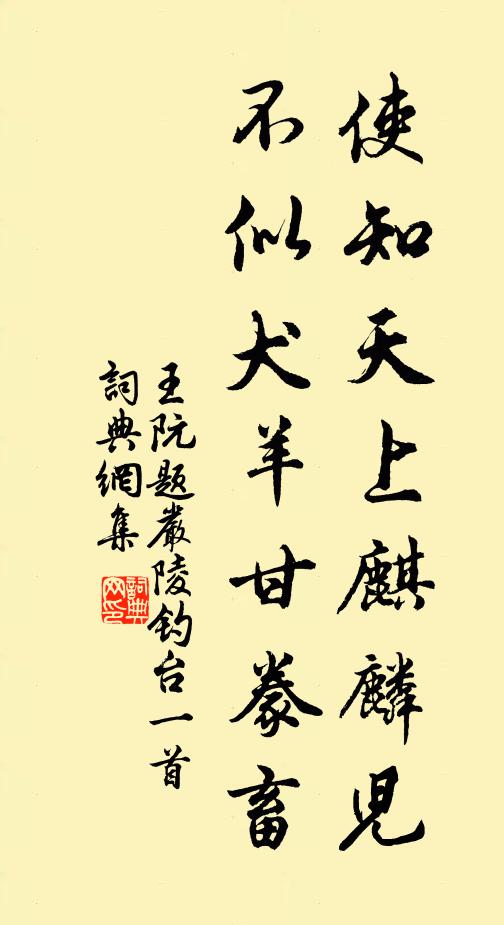 使知天上麒麟児
不似犬羊甘豢畜
王阮题嚴陵钓台一首
詞典網集
詞典网印